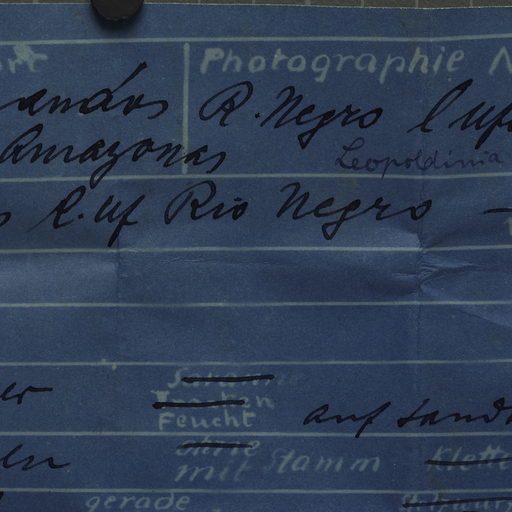 ort Photographie N
andos R. Negro l uf
Amazonas Leopoldinia
s l. uf Rio Negro —
Savanne
er Trocken
Feucht auf sand
len ohne
mit Stamm Klette
gerade Stelzwurz